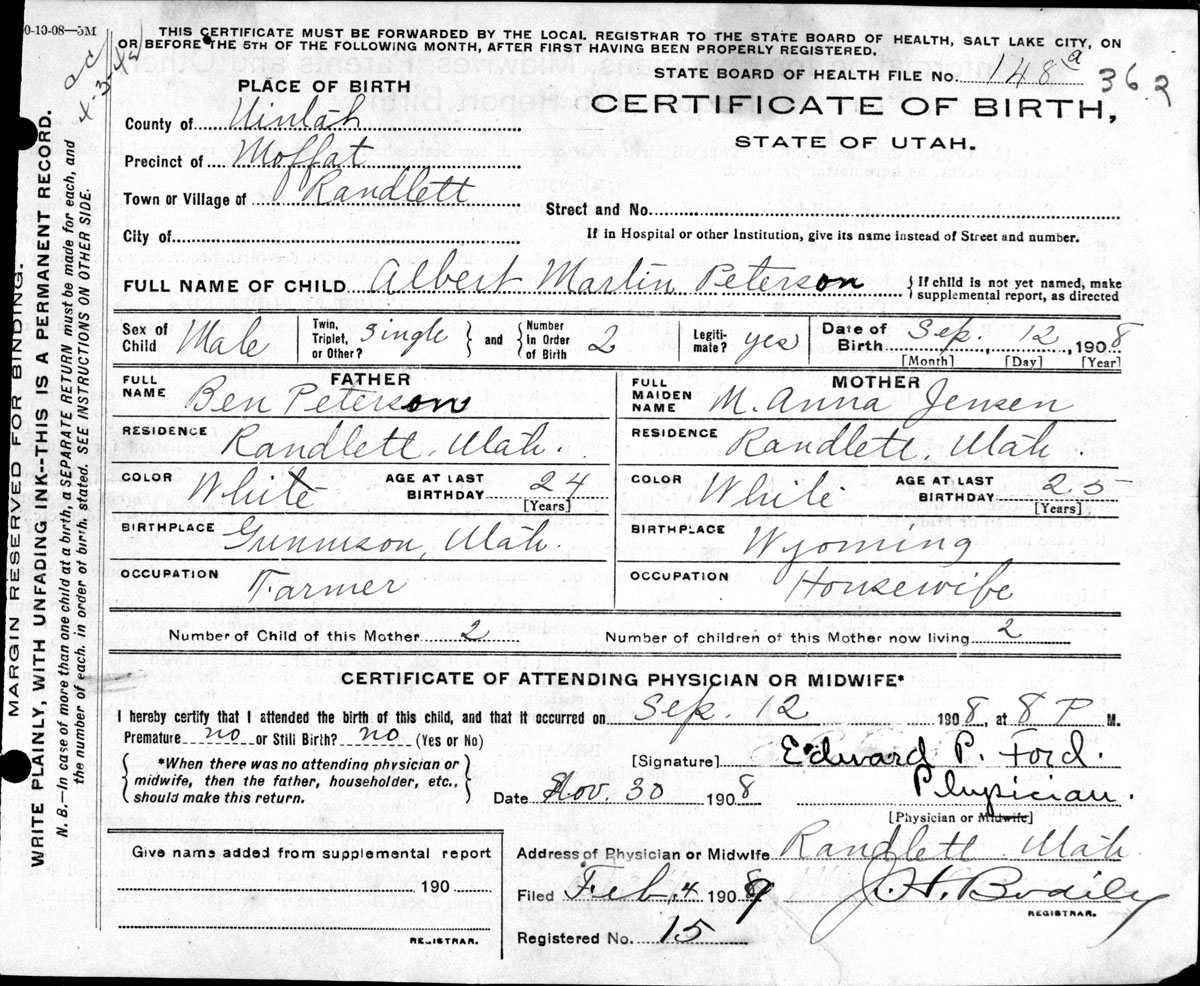 0-10-08—5M
THIS CERTIFICATE MUST BE FORWARDED BY THE LOCAL REGISTRAR TO THE STATE BOARD OF HEALTH, SALT LAKE CITY, ON
OR BEFORE THE 5TH OF THE FOLLOWING MONTH, AFTER FIRST HAVING BEEN PROPERLY REGISTERED.
STATE BOARD OF HEALTH FILE No. 148a 362
PLACE OF BIRTH
CERTIFICATE OF BIRTH,
STATE OF UTAH.
County of Uintah
Precinct of Moffat
Town or Village of Randlett
Street and No.
City of
If in Hospital or other Institution, give its name instead of Street and number.
FULL NAME OF CHILD Albert Martin Peterson { If child is not yet named, make supplemental report, as directed
Sex of Child Male
Twin, Triplet, or Other? single } and { Number in Order of Birth 2
Legitimate? yes
Date of Birth Sep. 12, 1908
[Month] [Day] [Year]
FATHER
FULL NAME Ben Peterson
RESIDENCE Randlett, Utah.
COLOR White AGE AT LAST BIRTHDAY 24
[Years]
BIRTHPLACE Gunnison, Utah.
OCCUPATION Farmer
MOTHER
FULL MAIDEN NAME M. Anna Jensen
RESIDENCE Randlett, Utah
COLOR White AGE AT LAST BIRTHDAY 25
[Years]
BIRTHPLACE Wyoming
OCCUPATION Housewife
Number of Child of this Mother 2 Number of children of this Mother now living 2
CERTIFICATE OF ATTENDING PHYSICIAN OR MIDWIFE*
I hereby certify that I attended the birth of this child, and that it occurred on Sep. 12 1908, at 8 P M.
Premature no or Still Birth? no (Yes or No)
{ *When there was no attending physician or midwife, then the father, householder, etc., should make this return. }
[Signature] Edward P. Ford.
Date Nov 30 1908 Physician.
[Physician or Midwife]
Give name added from supplemental report
190
REGISTRAR.
Address of Physician or Midwife Randlett Utah
Filed Feb. 4 1909 J. H. Bodily
REGISTRAR.
Registered No. 15
MARGIN RESERVED FOR BINDING.
WRITE PLAINLY, WITH UNFADING INK--THIS IS A PERMANENT RECORD.
N. B.—In case of more than one child at a birth, a SEPARATE RETURN must be made for each, and
the number of each, in order of birth, stated. SEE INSTRUCTIONS ON OTHER SIDE.